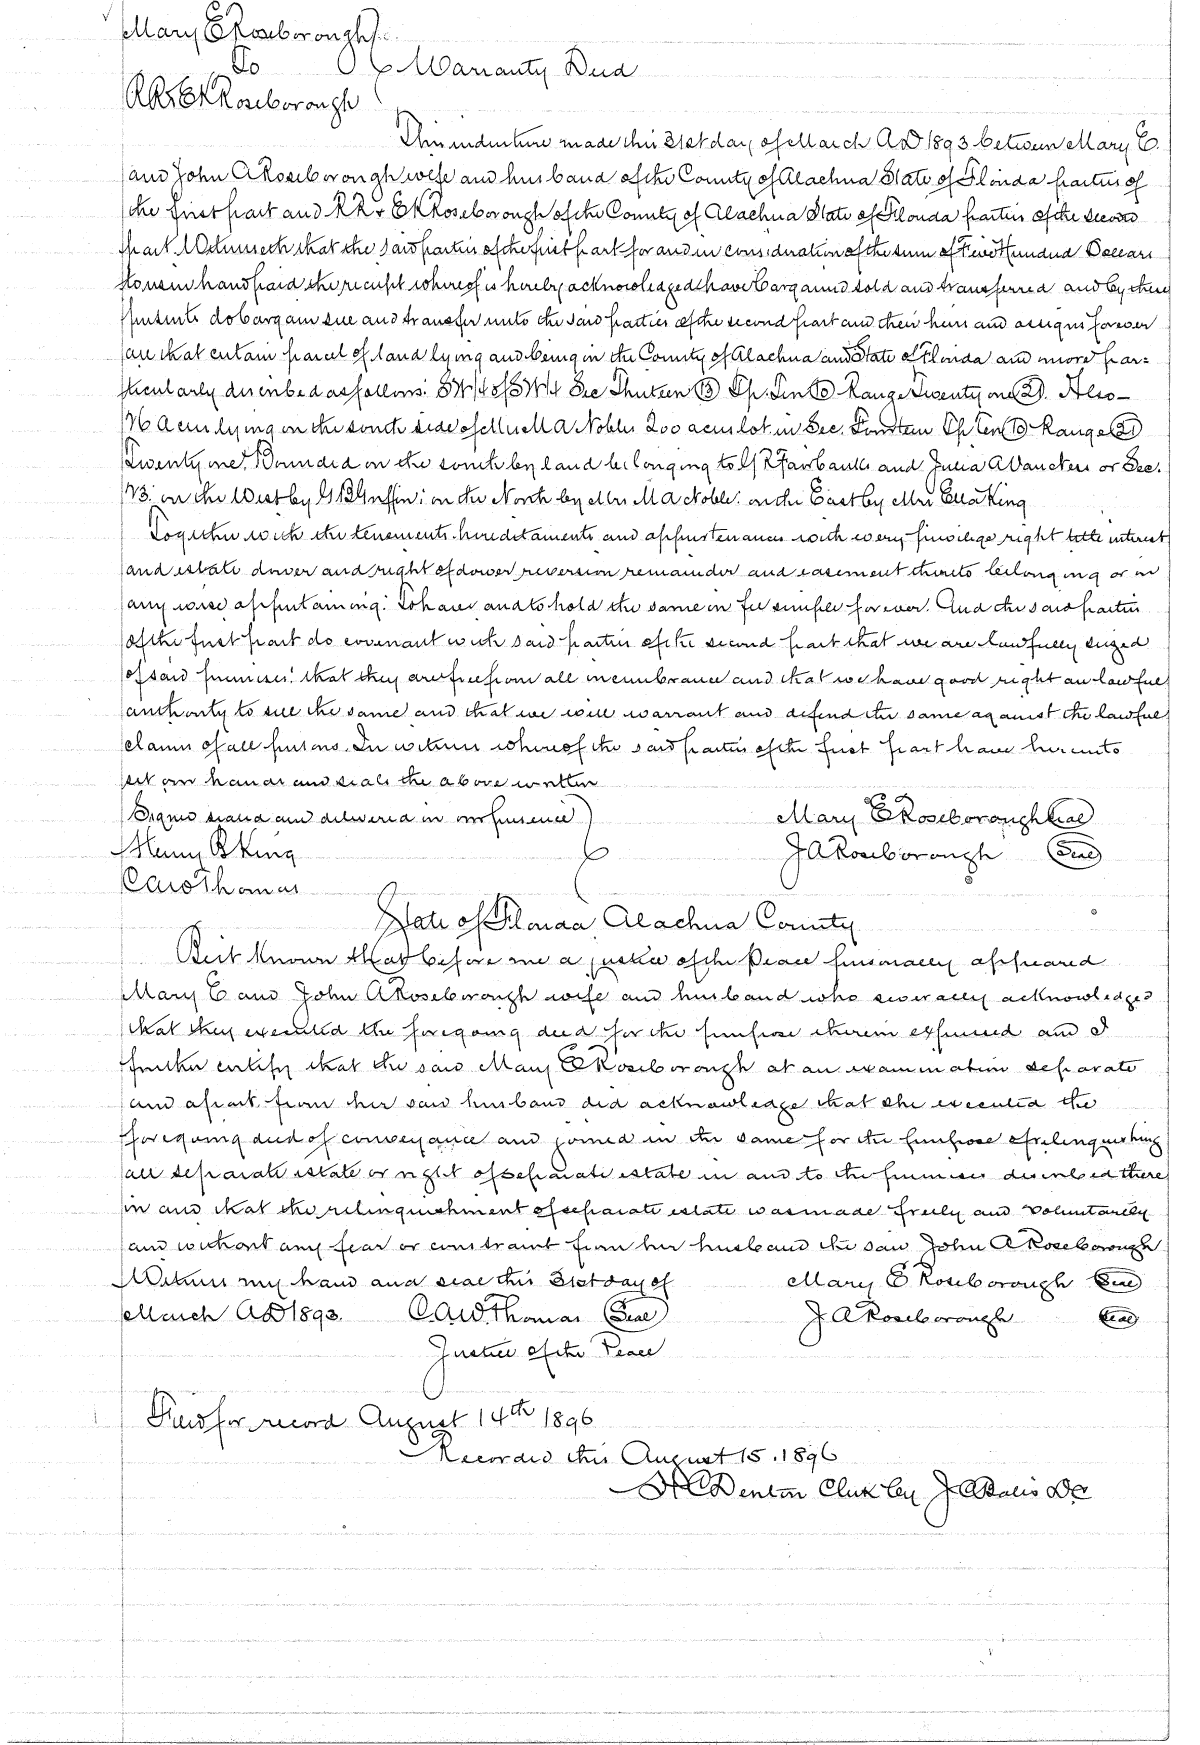 Mary E Roseborough
To Warranty Deed
R R & E K Roseborough
This indenture made this 31st day of March AD 1893 between Mary E.
and John A Roseborough wife and husband of the County of Alachua State of Florida parties of
the first part and R R & E K Roseborough of the County of Alachua State of Florida parties of the second
part. Witnesseth that the said parties of the first part for and in consideration of the sum of Five Hundred Dollars
to us in hand paid the receipt whereof is hereby acknowledged have bargained sold and transferred and by these
presents do bargain sell and transfer unto the said parties of the second part and their heirs and assigns forever
all that certain parcel of land lying and being in the County of Alachua and State of Florida and more par=
ticularly described as follows: SW1/4 of SW1/4 Sec Thirteen (13) Tp. Ten (10) Range Twenty one (21). Also—
16 Acres lying on the south side of Mrs M A Nobles 200 acres lot in Sec. Fourteen Tp Ten (10) Range (21)
Twenty one. Bounded on the south by land belonging to G R Fairbanks and Julia A or Sec.
23. on the West by G B Griffin: on the North by Mrs M A Noble: on the East by Mrs Ella King
Together with the tenements hereditaments and appurtenances with every privilege right title interest
and estate dower and right of dower reversion remainder and easement thereto belonging or in
any wise appertaining: To have and to hold the same in fee simple forever. And the said parties
of the first part do covenant with said parties of the second part that we are lawfully seized
of said premises: that they are free from all incumbrance and that we have good right an lawful
authority to sell the same and that we will warrant and defend the same against the lawful
claims of all persons. In witness whereof the said parties of the first part have hereunto
set our hands and seals the above written
Signed sealed and delivered in our presence Mary E Roseborough Seal
Henry B King J A Roseborough Seal
C A W Thomas
State of Florida, Alachua County
Be it known that before me a justice of the Peace personally appeared
Mary E and John A Roseborough wife and husband who severally acknowledged
that they executed the foregoing deed for the purpose therein expressed and I
further certify that the said Mary E Roseborough at an examination separate
and apart from her said husband did acknowledge that she executed the
foregoing deed of conveyance and joined in the same for the purpose of relinquishing
all separate estate or right of separate estate in and to the premises described there
in and that the relinquishment of separate estate was made freely and voluntarily
and without any fear or constraint from her husband the said John A Roseborough
Witness my hand and seal this 31st day of Mary E Roseborough Seal
March AD 1893. C A W Thomas Seal J A Roseborough Seal
Justice of the Peace
Filed for record August 14th 1896
Recorded this August 15. 1896
H C Denton Clerk by J A DC